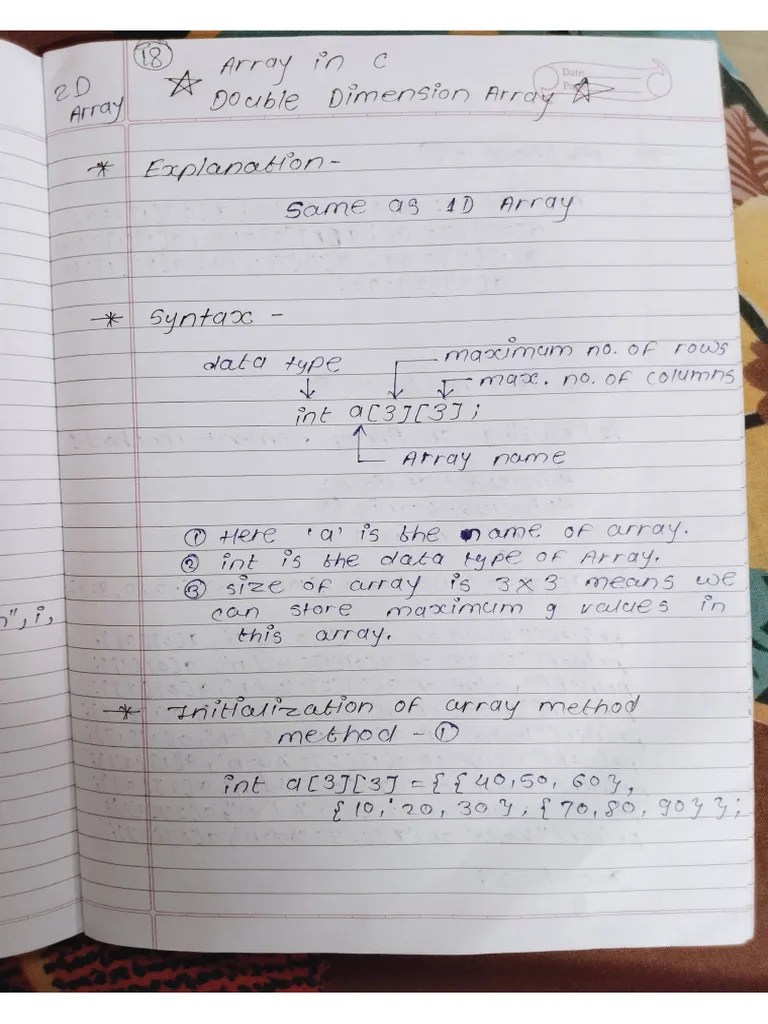 18
Array in C
2D
Array
Double Dimension Array
Date
* Explanation -
Same as 1D Array
* Syntax -
data type
maximum no. of rows
max. no. of columns
int a[3][3];
Array name
① Here 'a' is the name of array.
② int is the data type of Array.
③ size of array is 3x3 means we
can store maximum 9 values in
this array.
n", i,
* Initialization of array method
method - ①
int a[3][3] = { { 40, 50, 60 },
{ 10, 20, 30 }, { 70, 80, 90 } };